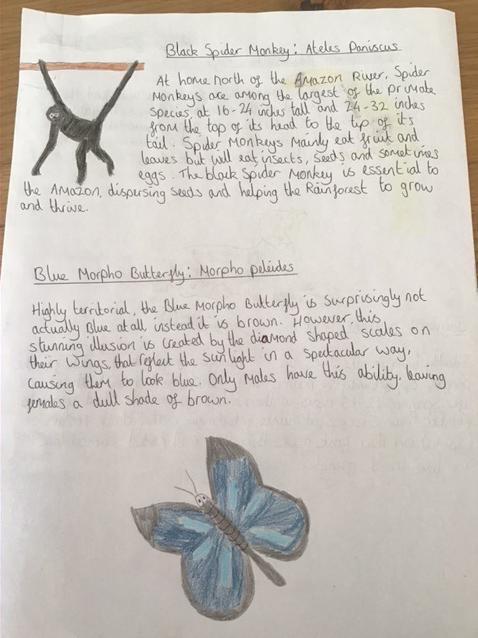 Black Spider Monkey: Ateles Paniscus
At home north of the Amazon River, Spider
Monkeys are among the largest of the primate
species, at 16-24 inches tall and 24-32 inches
from the top of its head to the tip of its
tail. Spider Monkeys mainly eat fruit and
leaves but will eat insects, seeds and sometimes
eggs. The black Spider Monkey is essential to
the Amazon, dispersing seeds and helping the Rainforest to grow
and thrive.
Blue Morpho Butterfly: Morpho peleides
Highly territorial, the Blue Morpho Butterfly is surprisingly not
actually Blue at all instead it is brown. However, this
stunning illusion is created by the diamond shaped scales on
their wings, that reflect the sunlight in a spectacular way,
causing them to look blue. Only males have this ability, leaving
females a dull shade of brown.